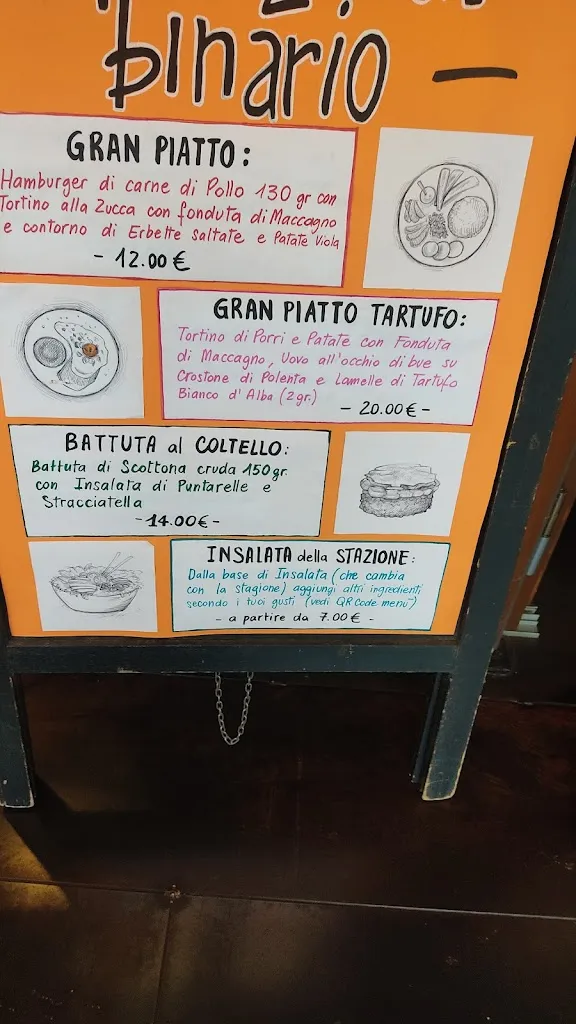 binario -
GRAN PIATTO:
Hamburger di carne di Pollo 130 gr con
Tortino alla Zucca con fonduta di Maccagno
e contorno di Erbette saltate e Patate Viola
- 12.00 €
GRAN PIATTO TARTUFO:
Tortino di Porri e Patate con Fonduta
di Maccagno, Uovo all'occhio di bue su
Crostone di Polenta e Lamelle di Tartufo
Bianco d'Alba (2gr.)
- 20.00€ -
BATTUTA al COLTELLO:
Battuta di Scottona cruda 150gr.
con Insalata di Puntarelle e
Stracciatella
-14.00€-
INSALATA della STAZIONE:
Dalla base di Insalata (che cambia
con la stagione) aggiungi altri ingredienti
secondo i tuoi gusti (vedi QR Code menu')
- a partire da 7.00€ -